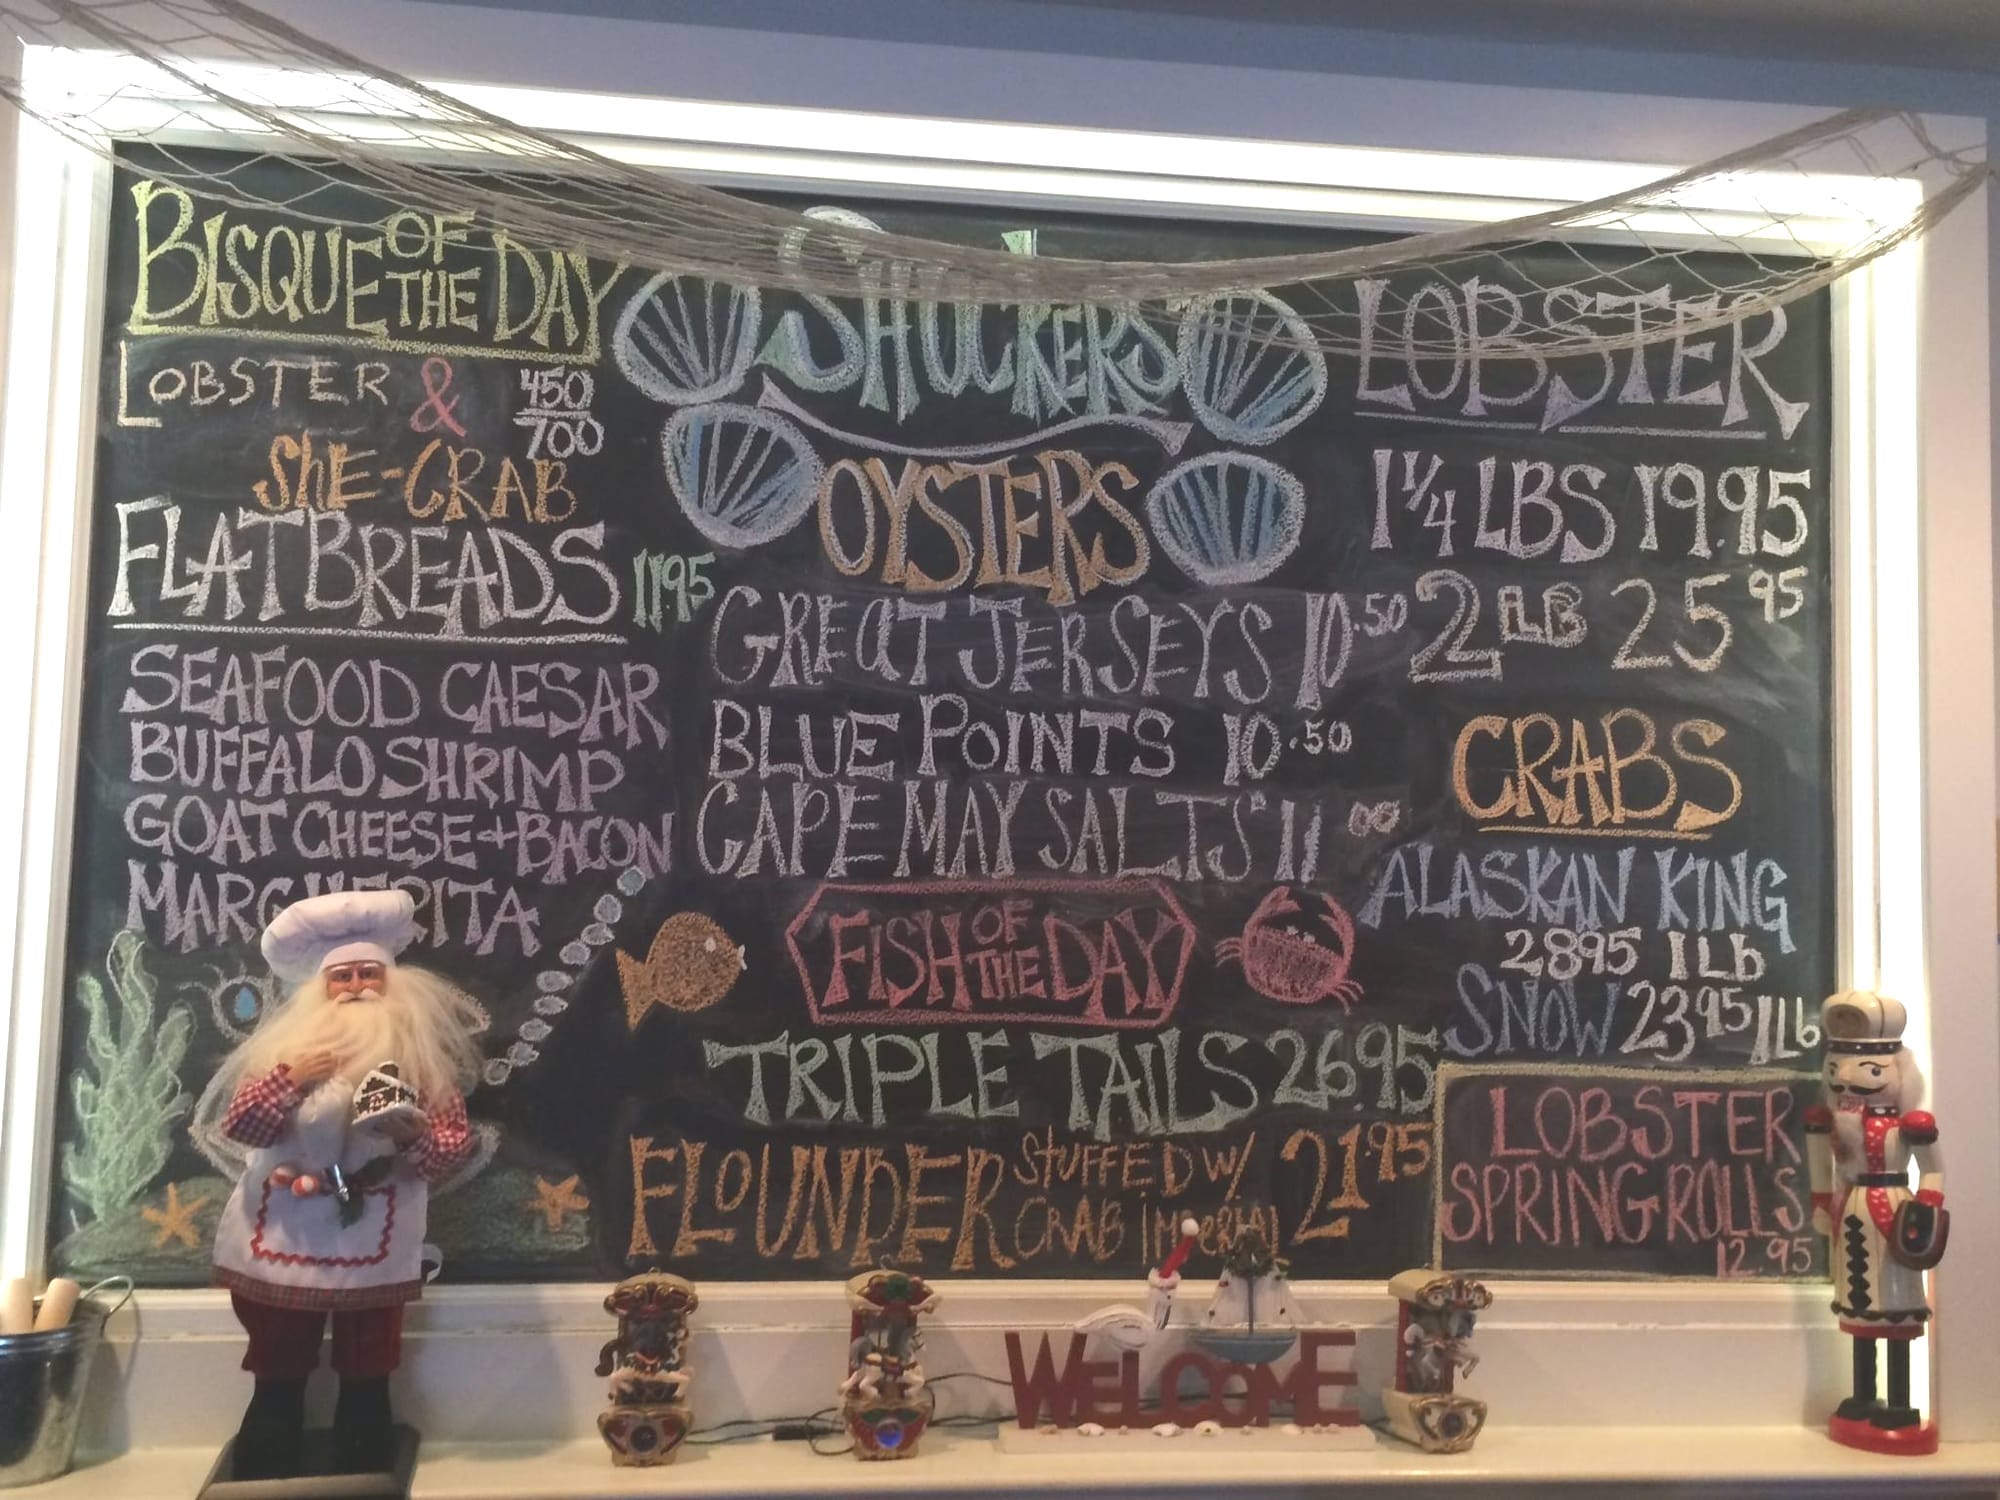 BISQUE OF THE DAY
LOBSTER & 450/700
SHE-CRAB
FLATBREADS 1195
SEAFOOD CAESAR
BUFFALO SHRIMP
GOAT CHEESE + BACON
MARGHERITA
SHUCKERS
OYSTERS
GREAT JERSEYS 10.50
BLUE POINTS 10.50
CAPE MAY SALTS 11 00
FISH OF THE DAY
TRIPLE TAILS 26.95
FLOUNDER STUFFED W/ CRAB IMPERIAL 21.95
LOBSTER
1 1/4 LBS 19.95
2 LB 25 95
CRABS
ALASKAN KING
2895 1Lb
SNOW 2395 1Lb
LOBSTER
SPRING ROLLS
12.95
WELCOME